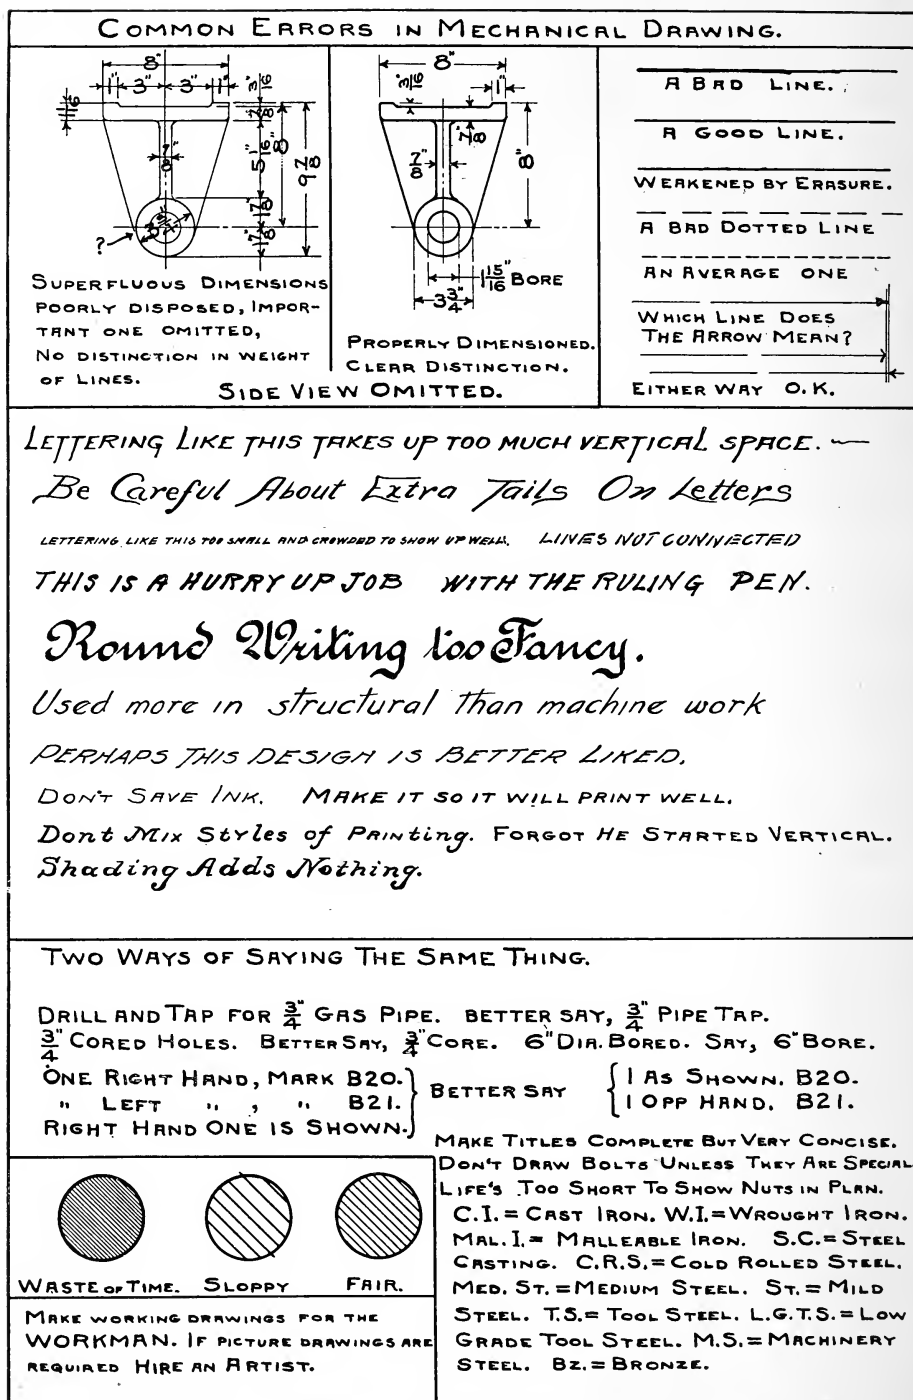 COMMON ERRORS IN MECHANICAL DRAWING.
8"
1" 3" 3" 1"
3/16
11/16
7/8
8"
7/8"
5 1/16"
9 7/8
1 7/8"
1 7/8"
?
SUPERFLUOUS DIMENSIONS
POORLY DISPOSED, IMPOR-
TANT ONE OMITTED,
NO DISTINCTION IN WEIGHT
OF LINES.
8"
3/16"
1"
7/8"
7/8"
8"
1 15/16" BORE
3 3/4"
PROPERLY DIMENSIONED.
CLEAR DISTINCTION.
SIDE VIEW OMITTED.
A BAD LINE.
A GOOD LINE.
WEAKENED BY ERASURE.
A BAD DOTTED LINE
AN AVERAGE ONE
WHICH LINE DOES
THE ARROW MEAN?
EITHER WAY O.K.
LETTERING LIKE THIS TAKES UP TOO MUCH VERTICAL SPACE.
Be Careful About Extra Tails On Letters
LETTERING LIKE THIS TOO SMALL AND CROWDED TO SHOW UP WELL. LINES NOT CONNECTED
THIS IS A HURRY UP JOB WITH THE RULING PEN.
Round Writing too Fancy.
Used more in structural than machine work
PERHAPS THIS DESIGN IS BETTER LIKED.
DON'T SAVE INK. MAKE IT SO IT WILL PRINT WELL.
Dont Mix Styles of Printing. FORGOT HE STARTED VERTICAL.
Shading Adds Nothing.
TWO WAYS OF SAYING THE SAME THING.
DRILL AND TAP FOR 3/4" GAS PIPE. BETTER SAY, 3/4" PIPE TAP.
3/4" CORED HOLES. BETTER SAY, 3/4" CORE. 6" DIA. BORED. SAY, 6" BORE.
ONE RIGHT HAND, MARK B20.
" LEFT " , " B21.
RIGHT HAND ONE IS SHOWN.
BETTER SAY
1 AS SHOWN. B20.
1 OPP HAND. B21.
WASTE OF TIME. SLOPPY FAIR.
MAKE WORKING DRAWINGS FOR THE
WORKMAN. IF PICTURE DRAWINGS ARE
REQUIRED HIRE AN ARTIST.
MAKE TITLES COMPLETE BUT VERY CONCISE.
DON'T DRAW BOLTS UNLESS THEY ARE SPECIAL
LIFE'S TOO SHORT TO SHOW NUTS IN PLAN.
C.I.= CAST IRON. W.I.=WROUGHT IRON.
MAL.I.= MALLEABLE IRON. S.C.= STEEL
CASTING. C.R.S.= COLD ROLLED STEEL.
MED. ST.=MEDIUM STEEL. ST.= MILD
STEEL. T.S.= TOOL STEEL. L.G.T.S.= LOW
GRADE TOOL STEEL. M.S.= MACHINERY
STEEL. BZ.= BRONZE.